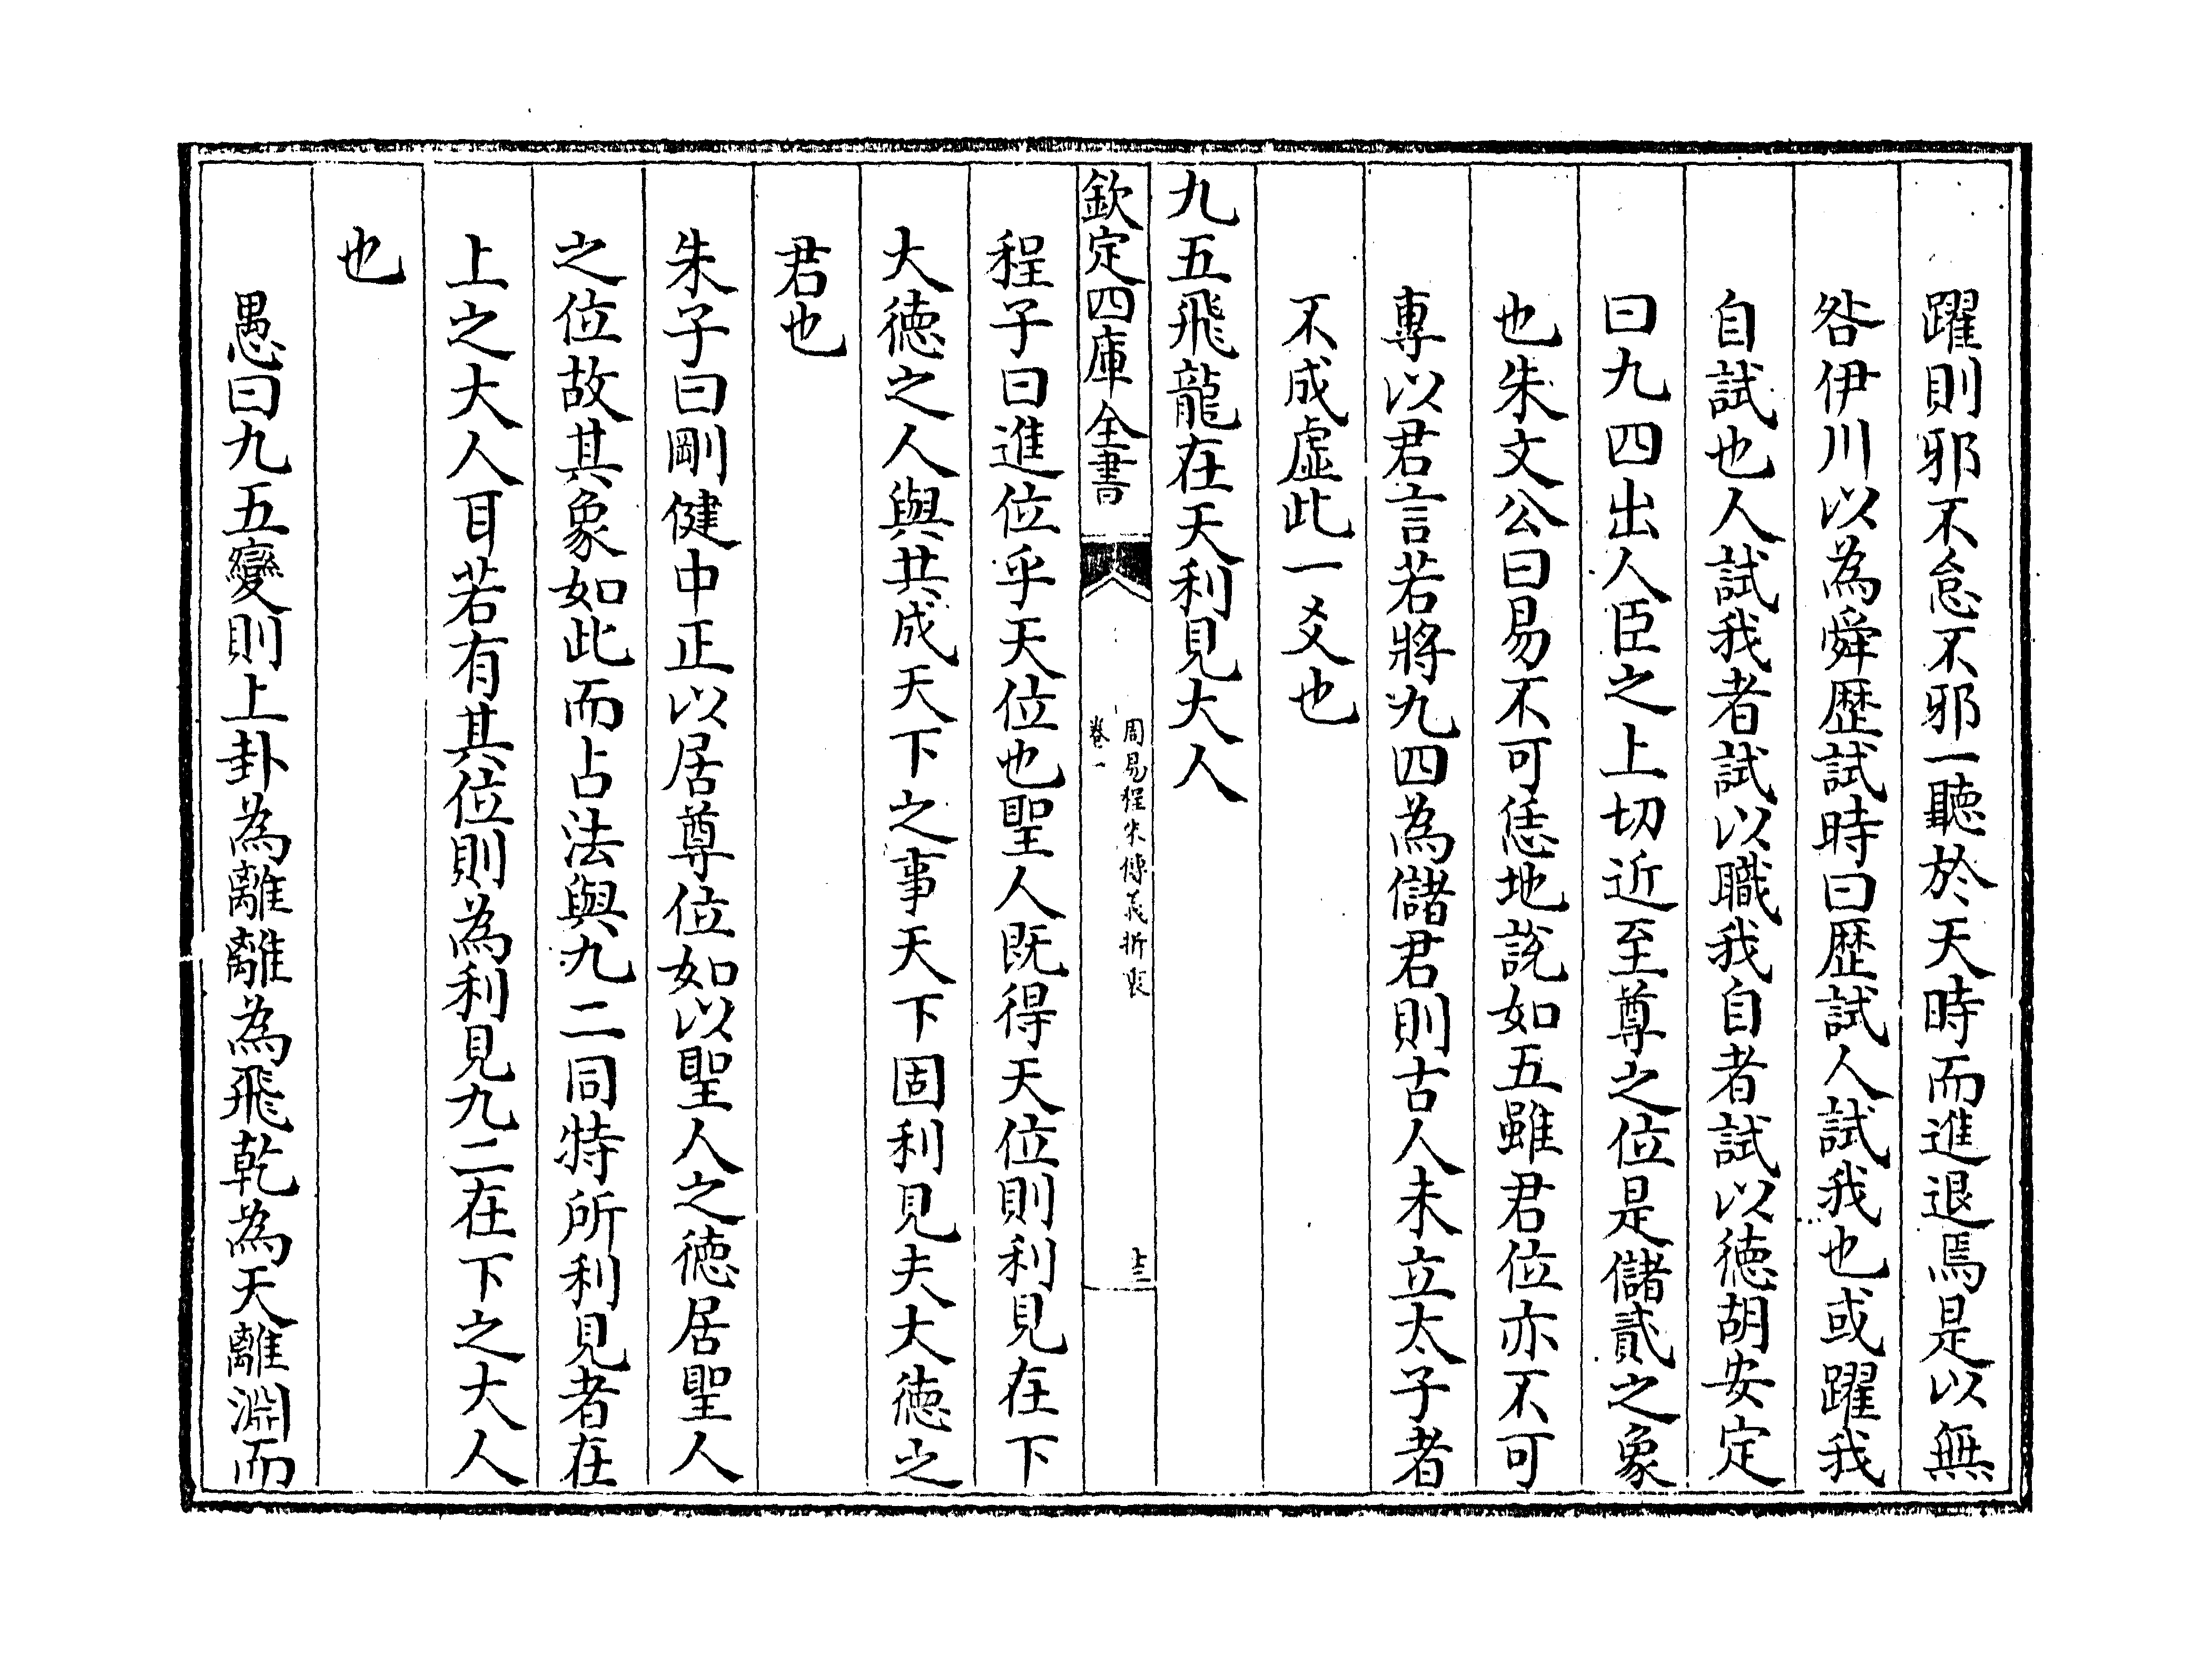 躍則邪不怠不邪一聽於天時而進退焉是以無
咎伊川以為舜歴試時曰歴試人試我也或躍我
自試也人試我者試以職我自者試以徳胡安定
曰九四出人臣之上切近至尊之位是儲貳之象
也朱文公曰易不可恁地說如五雖君位亦不可
專以君言若將九四為儲君則古人未立太子者
不成虛此一爻也
九五飛龍在天利見大人
欽定四庫全書
周易程朱傳義折衷
卷一
十三
程子曰進位乎天位也聖人既得天位則利見在下
大徳之人與共成天下之事天下固利見夫大徳之
君也
朱子曰剛健中正以居尊位如以聖人之徳居聖人
之位故其象如此而占法與九二同特所利見者在
上之大人耳若有其位則為利見九二在下之大人
也
愚曰九五變則上卦為離離為飛乾為天離淵而